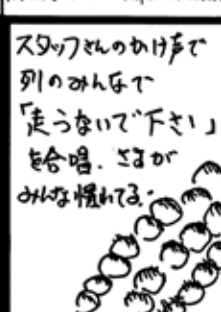 スタッフさんのかけ声で
列のみんなで
「走らないで下さい」
を合唱。さすが
みんな慣れてる。